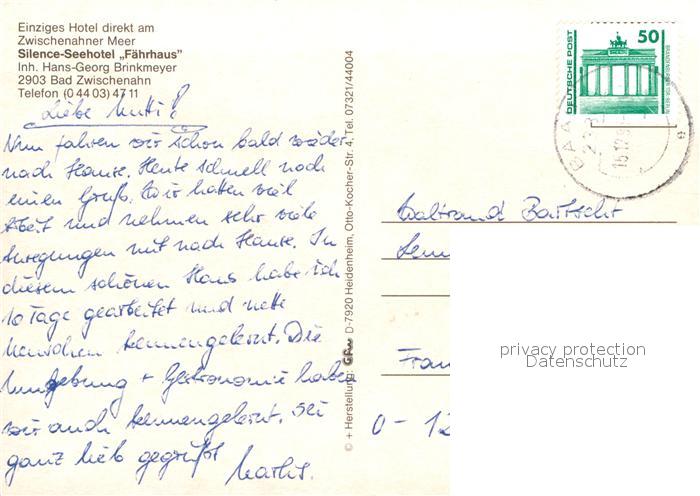 Einziges Hotel direkt am
Zwischenahner Meer
Silence-Seehotel „Fährhaus"
Inh. Hans-Georg Brinkmeyer
2903 Bad Zwischenahn
Telefon (0 44 03) 47 11
Liebe Mutti!
Nun fahren wir schon bald wieder
nach Hause. Heute schnell noch
einen Gruß. Wir hatten viel
Arbeit und nehmen sehr viele
Anregungen mit nach Hause. In
diesem schönen Haus habe ich
10 Tage gearbeitet und nette
Menschen kennengelernt. Die
Umgebung + Gastronomie haben
wir auch kennengelernt. Sei
ganz lieb gegrüßt
© + Herstellung: D-7920 Heidenheim, Otto-Kocher-Str. 4, Tel. 07321/44004
DEUTSCHE POST
50
BRANDENBURGER TOR BERLIN
Waltraud
Fran
O-12
privacy protection
Datenschutz